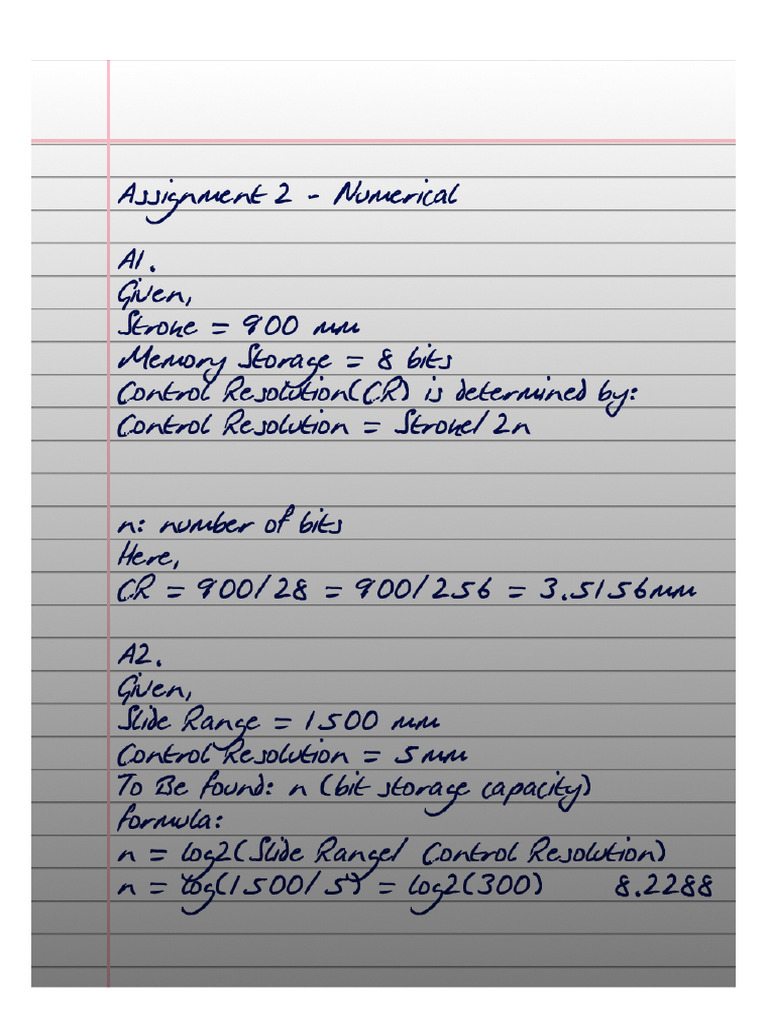 Assignment 2 - Numerical
A1.
Given,
Stroke = 900 mm
Memory Storage = 8 bits
Control Resolution(CR) is determined by:
Control Resolution = Stroke/ 2n
n: number of bits
Here,
CR = 900/28 = 900/256 = 3.5156mm
A2.
Given,
Slide Range = 1500 mm
Control Resolution = 5mm
To Be found: n (bit storage capacity)
formula:
n = log2(Slide Range/ Control Resolution)
n = log(1500/5) = log2(300) 8.2288